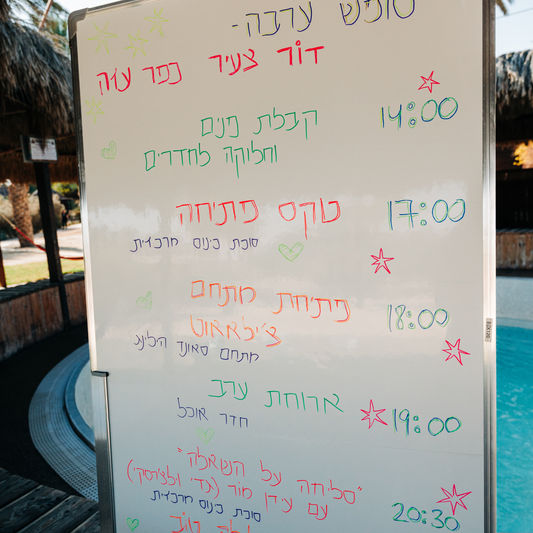 סופש ערבה -
דור צעיר כפר עזה
14:00
קבלת פנים
וחלוקה לחדרים
17:00
טקס פתיחה
סוכת כינוס מרכזית
18:00
פתיחת מתחם
צ'ילאאוט
מתחם סאונד הילינג
19:00
ארוחת ערב
חדר אוכל
20:30
"סליחה על השאלה"
עם עידן מור (גדי וילצ'רסקי)
סוכת כינוס מרכזית